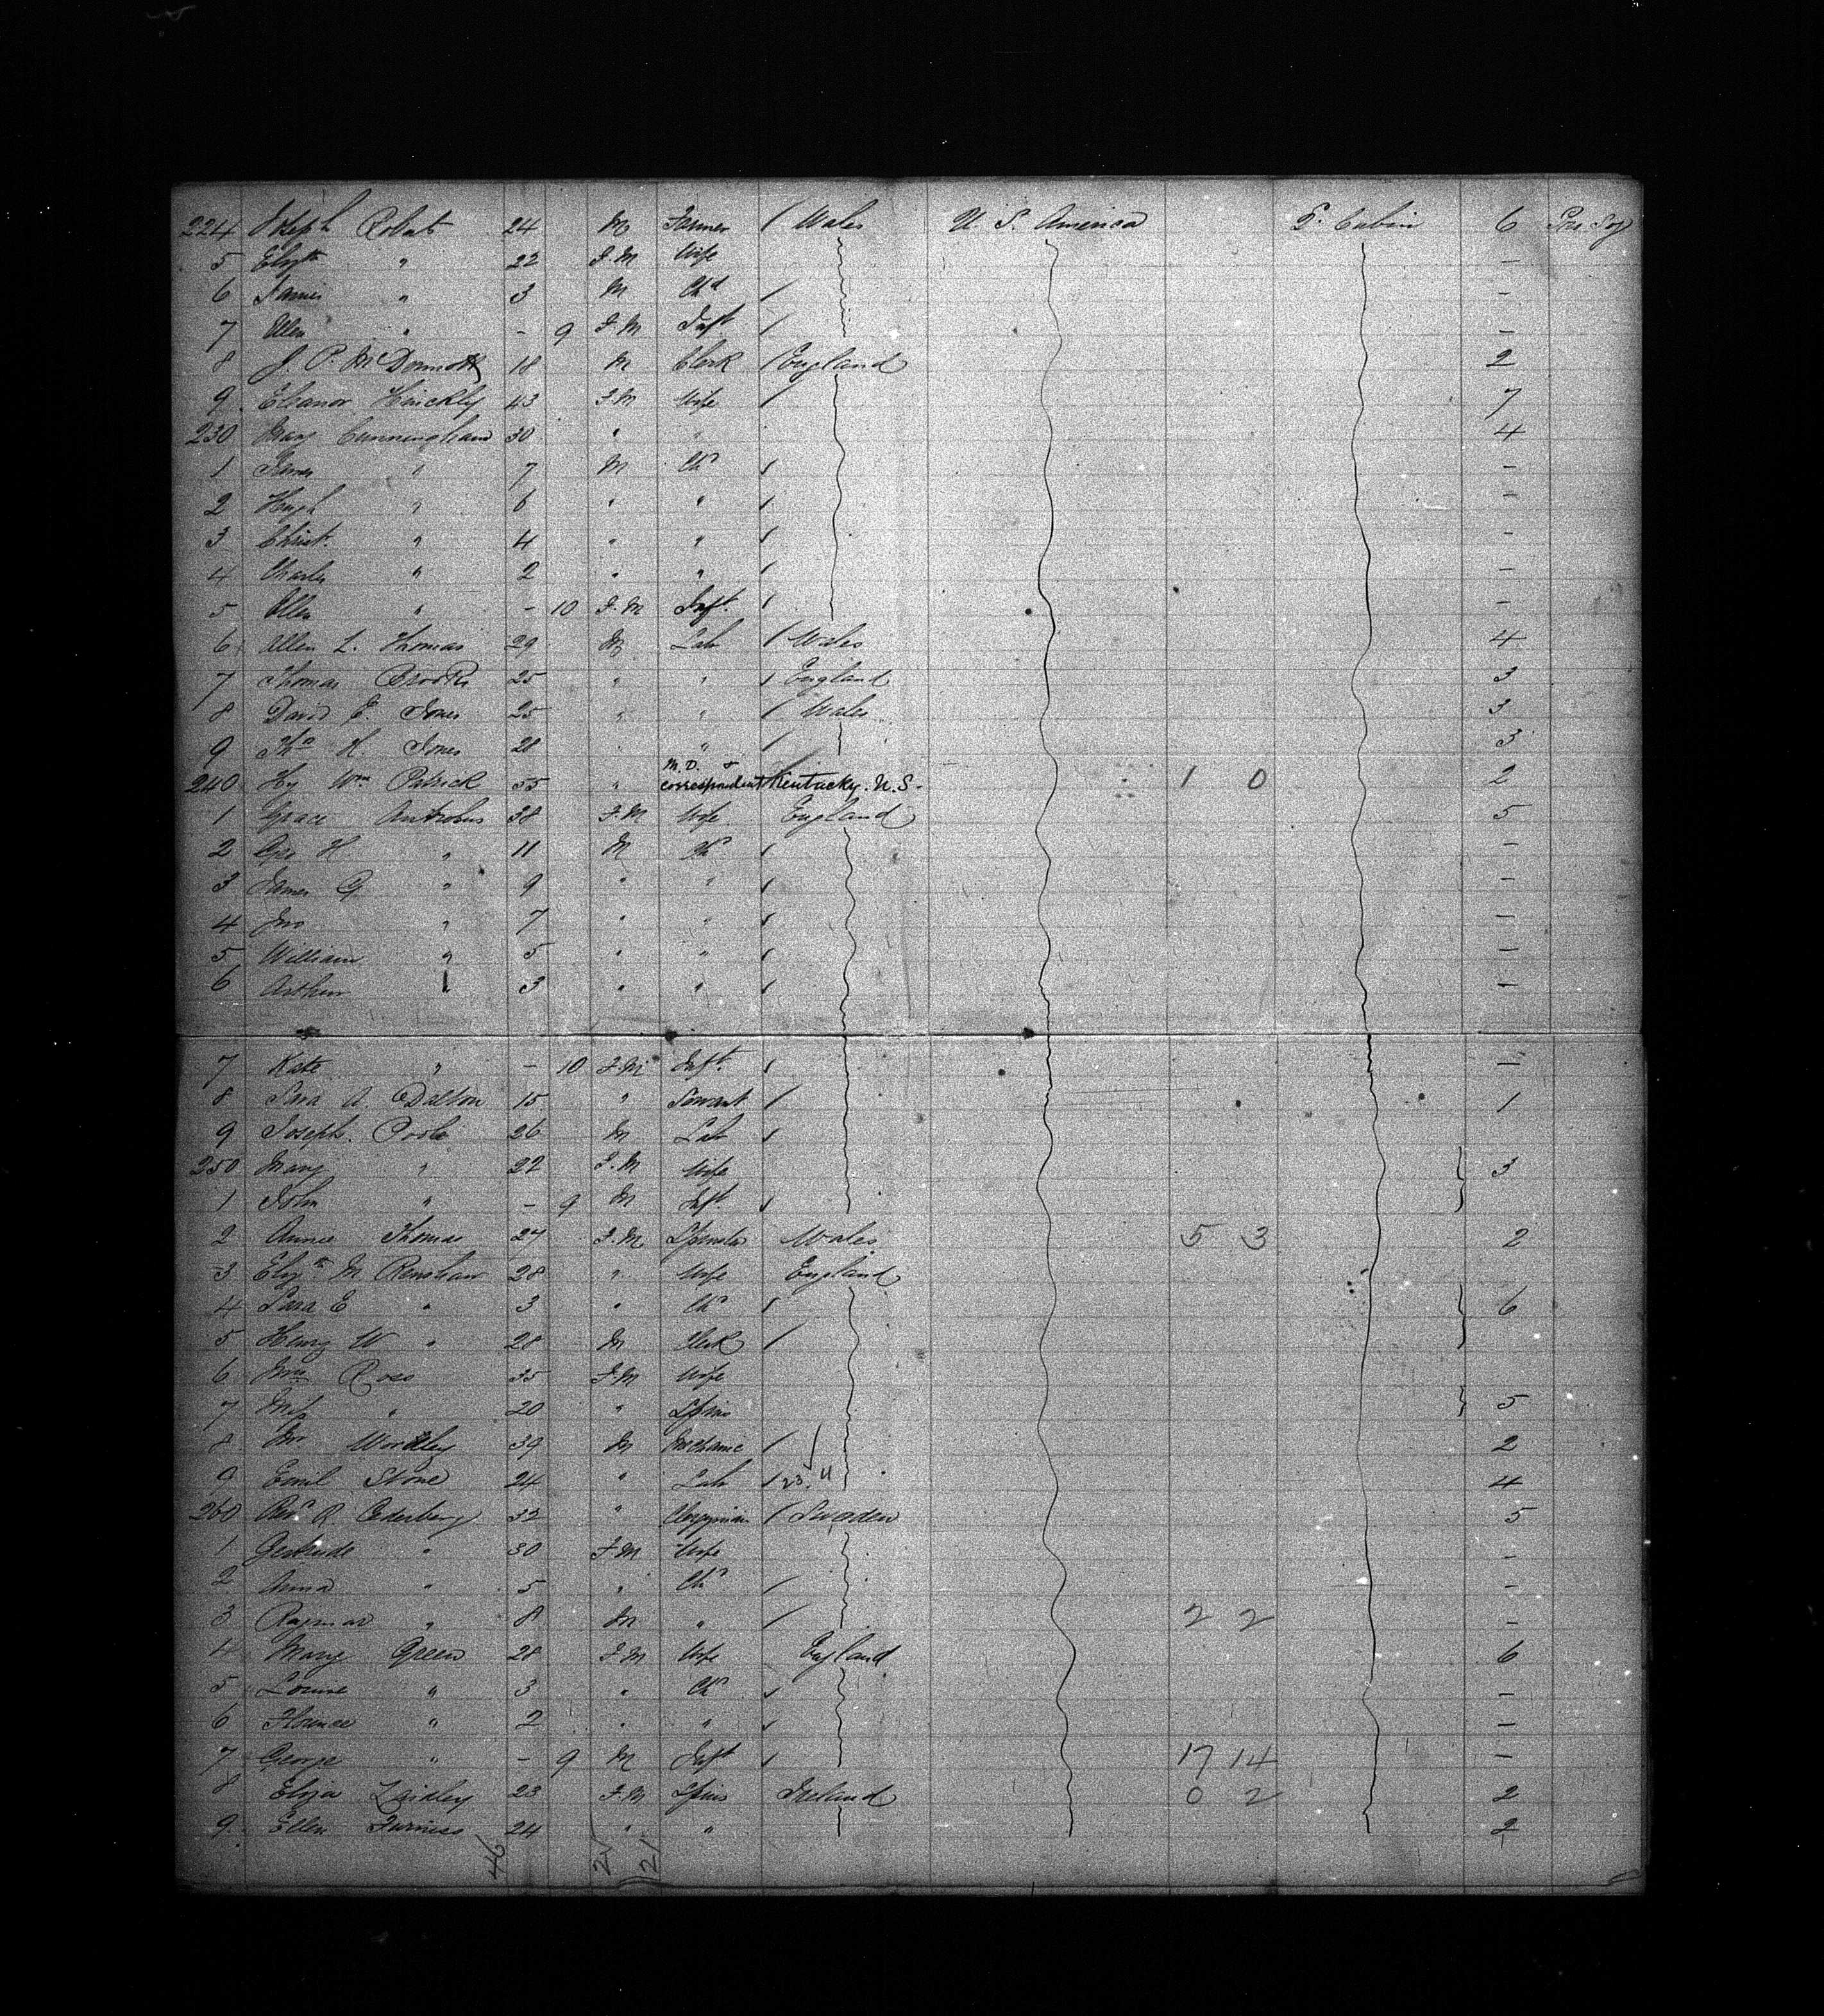 224 Joseph Robert 24 M Farmer / Wales U. S. America S. Cabin 6
5 Elizth " 22 F.M Wife -
6 James " 3 M Chd / -
7 Ellen " - 9 F.M Inft /
8 J. P. McDermott 18 M Clerk / England 2
9 Eleanor Hinckly 43 F.M Wife / 7
230 Mary Cunningham 30 " " 4
1 James " 7 M Chd / -
2 Hugh " 6 " " / -
3 Christ. " 4 " " / -
4 Charles " 2 " " / -
5 Ellen " - 10 F.M Inft. / -
6 Allen L. Thomas 29 M Lab / Wales 4
7 Thomas Brooks 25 " " / England 3
8 David E. Jones 25 " " / Wales 3
9 H. Jones 28 " " / 3
240 Hy Wm Patrick 55 " M.D. & correspondent / Kentucky. U.S. 1 0 2
1 Grace Antrobus 38 F.M Wife England 5
2 Geo H. " 11 M Chd / -
3 James G " 9 " " / -
4 Jno " 7 " " / -
5 William " 5 " " / -
6 Arthur 3 " " / -
7 Kate " - 10 F.M Inft. / -
8 Sara A. Dalton 15 " Servant / 1
9 Joseph Poole 26 M Lab /
250 Mary " 22 F.M Wife 3
1 John " - 9 M Inft /
2 Annie Thomas 27 F.M Spinster Wales 5 3 2
3 Elizth M Renshaw 28 " Wife England
4 Sara E " 3 " Chd / 6
5 Henry W " 28 M Clerk /
6 Mrs Ross 35 F.M Wife
7 " 20 " Spins 5
8 Wordley 39 M Mechanic / 2
9 Emil Stone 24 " Lab / 4
260 Revd Cederberg 32 " Clergyman / Sweden 5
1 Gertrude " 30 F.M Wife -
2 Anna " 5 " Chd / -
3 Ragnar " 8 M " / 2 2 -
4 Mary Green 28 F.M Wife England 6
5 Louise " 3 " Chd / -
6 Florence " 2 " " / -
7 George " - 9 M Inft / 17 14 -
8 Eliza 23 F.M Spins Ireland 0 2 2
9 Ellen Furniss 24 " " 2
46 25 21